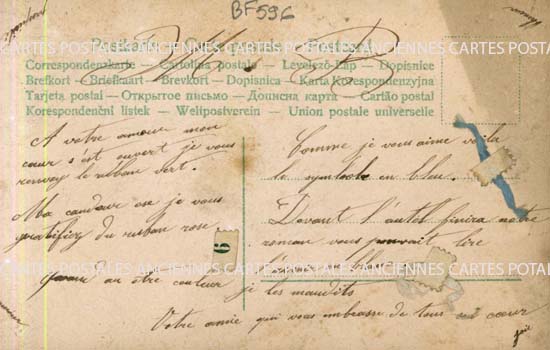 BF596
Postkarte — Carte postale — Postcard
Correspondenzkarte — Cartolina postale — Levelező-Lap — Dopisnice
Brefkort — Briefkaart — Brevkort — Dopisnica — Karta Korespondencyjna
Tarjeta postal — Открытое письмо — Дописна карта — Cartão postal
Korespondenční lístek — Weltpostverein — Union postale universelle
A votre amour mon
cœur s'est ouvert je vous
renvoy le ruban vert.
Ma candeur je vous
gratifiez du ruban rose
quand au être couleur je les maudits
Comme je vous aime voila
le symbole en bleu.
Devant l'autel finira notre
roman vous pouvait lire
6
Votre amie qui vous embrasse de tous cœur
CARTES POSTALES ANCIENNES CARTES POSTALES ANCIENNES CARTES POSTALES